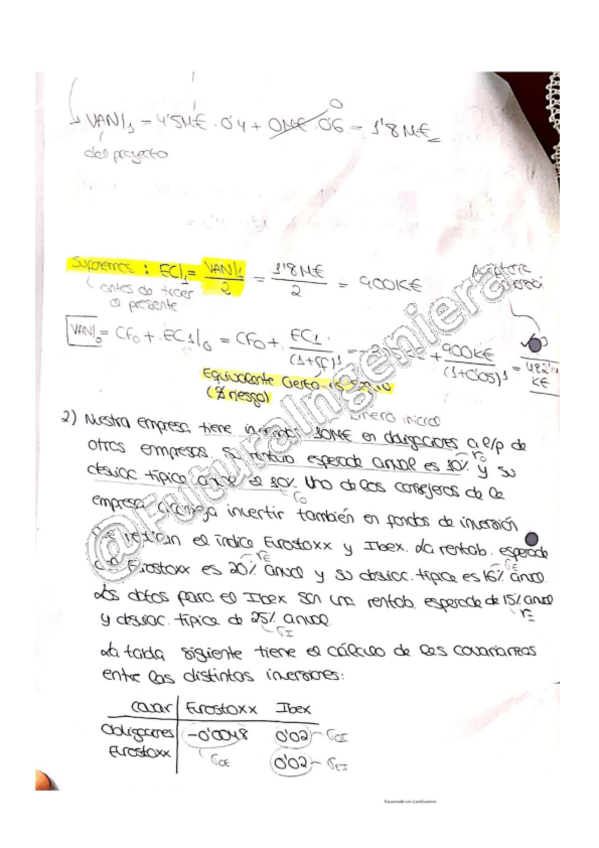 VAN|₁ = 4'5M€ · 0'4 + 0M€ · 0'6 = 1'8M€
del proyecto
Suponemos : EC|₁ = VAN|₁ / 2 = 1'8M€ / 2 = 900K€
(antes de traer
al presente
VAN|₀ = CF₀ + EC1|₀ = CF₀ + EC1 / (1+rf)¹ = 900K€ / (1+0'05)¹ =
K€
Equivalente Cierto
(% riesgo)
dinero inicial
2) Nuestra empresa tiene 10M€ en obligaciones a l/p de
otras empresas. Su rentab esperada anual es 10% y su
desviac. típica anual el 30%. Uno de los consejeros de la
empresa invertir también en fondos de inversión
el índice Eurostoxx y Ibex. La rentab. esperada
Eurostoxx es 20% anual y su desviac. típica es 16% anual.
Los datos para el Ibex son una rentab. esperada de 15% anual
y desviac. típica de 25% anual.
La tabla siguiente tiene el cálculo de las covarianzas
entre las distintas inversiones:
covar Eurostoxx Ibex
Obligaciones -0'0048 0'02 σOI
Eurostoxx σOE 0'02 σEI
@FuturaIngeniera
Escaneado con CamScanner